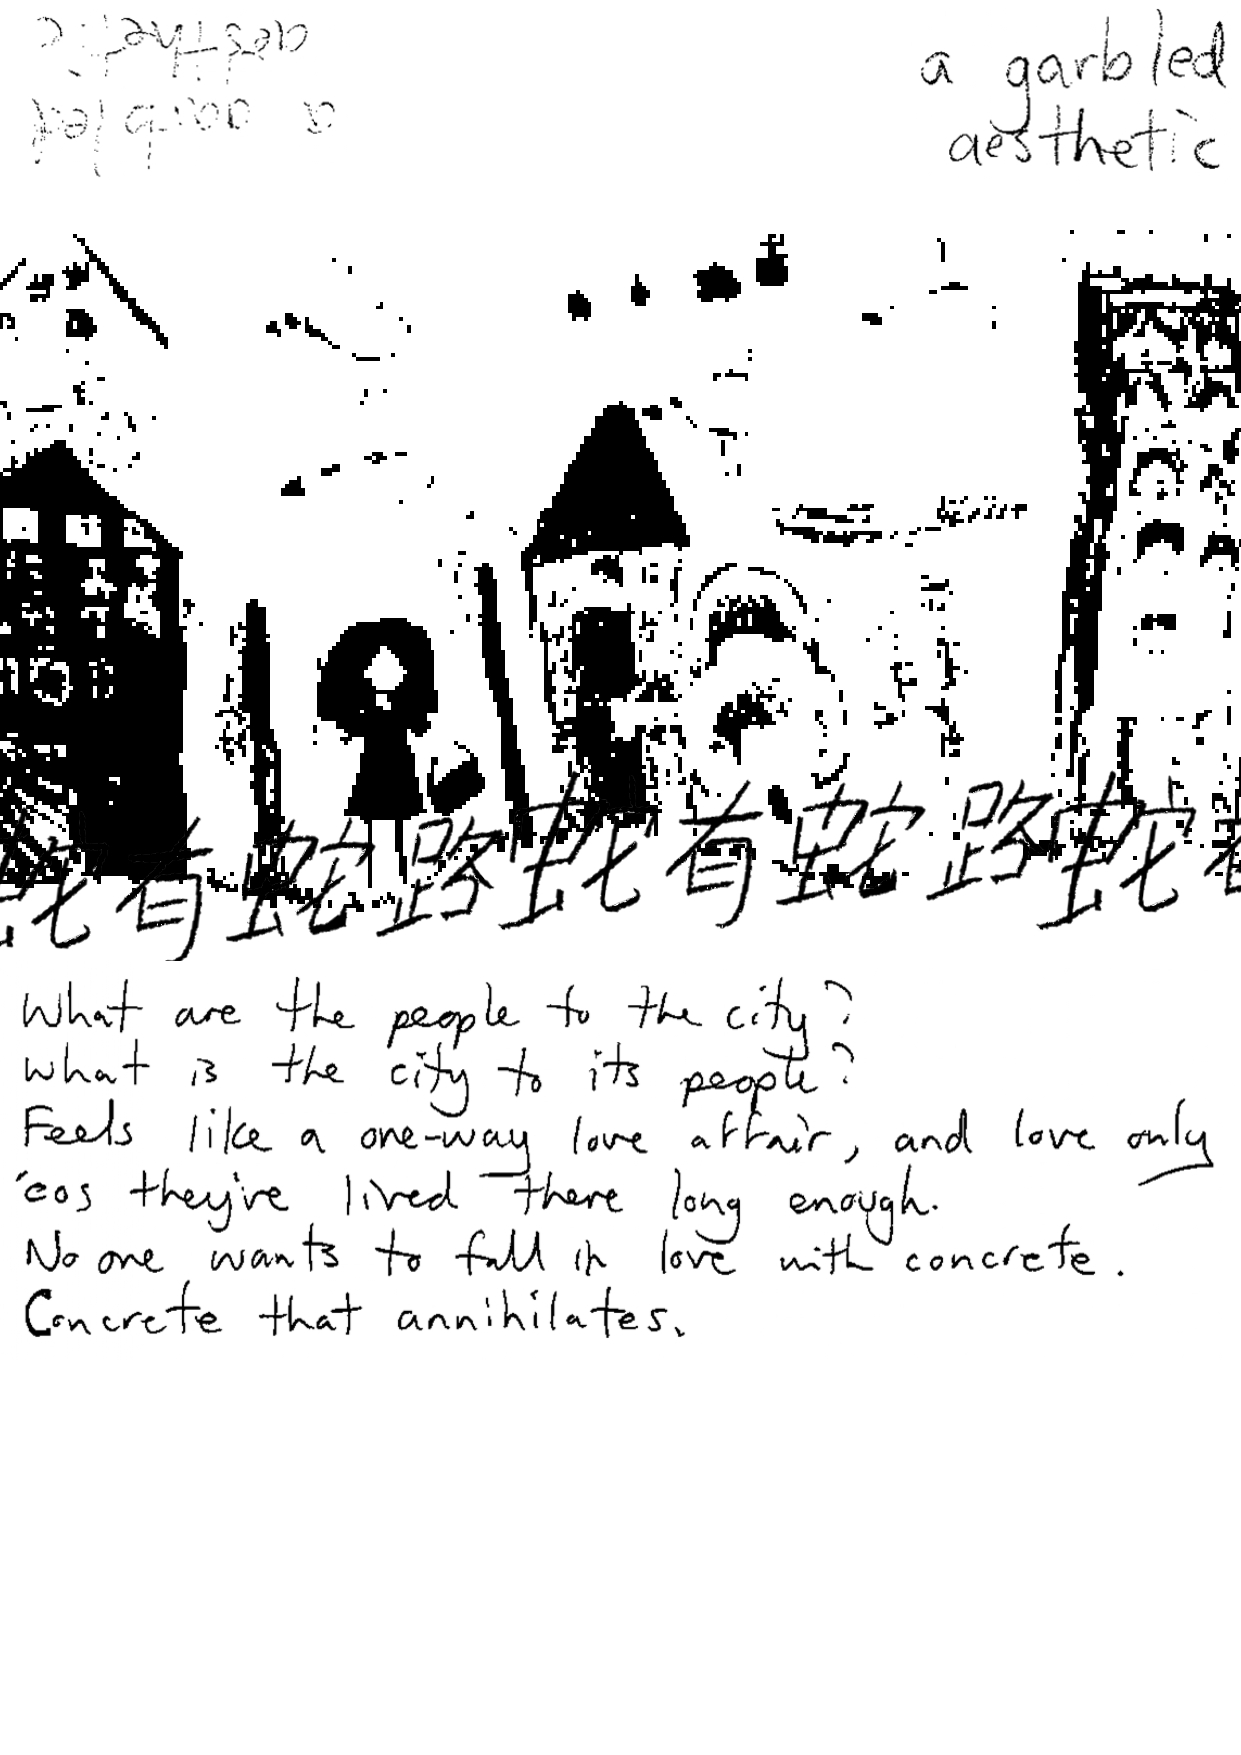 a garbled
aesthetic
蛇有蛇路蛇有蛇路蛇
What are the people to the city?
What is the city to its people?
Feels like a one-way love affair, and love only
'cos they've lived there long enough.
No one wants to fall in love with concrete.
Concrete that annihilates.